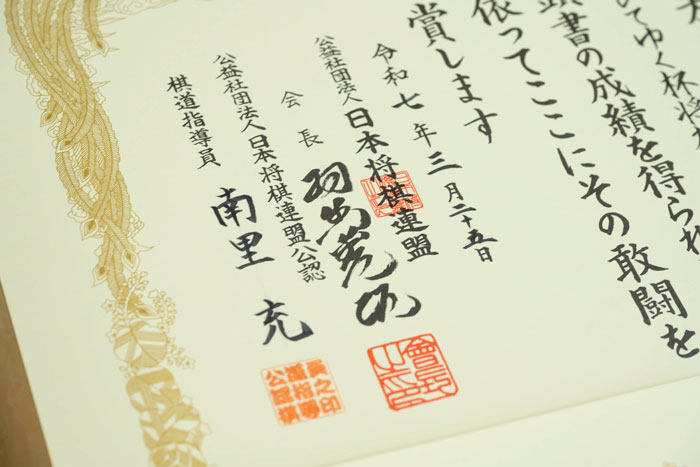 てゆく杯将
頭書の成績を得られ
依ってここにその敢闘を
賞します
令和七年三月二十五日
公益社団法人日本将棋連盟
会長 羽生善治
公益社団法人日本将棋連盟公認
棋道指導員 南里 充
會長之印